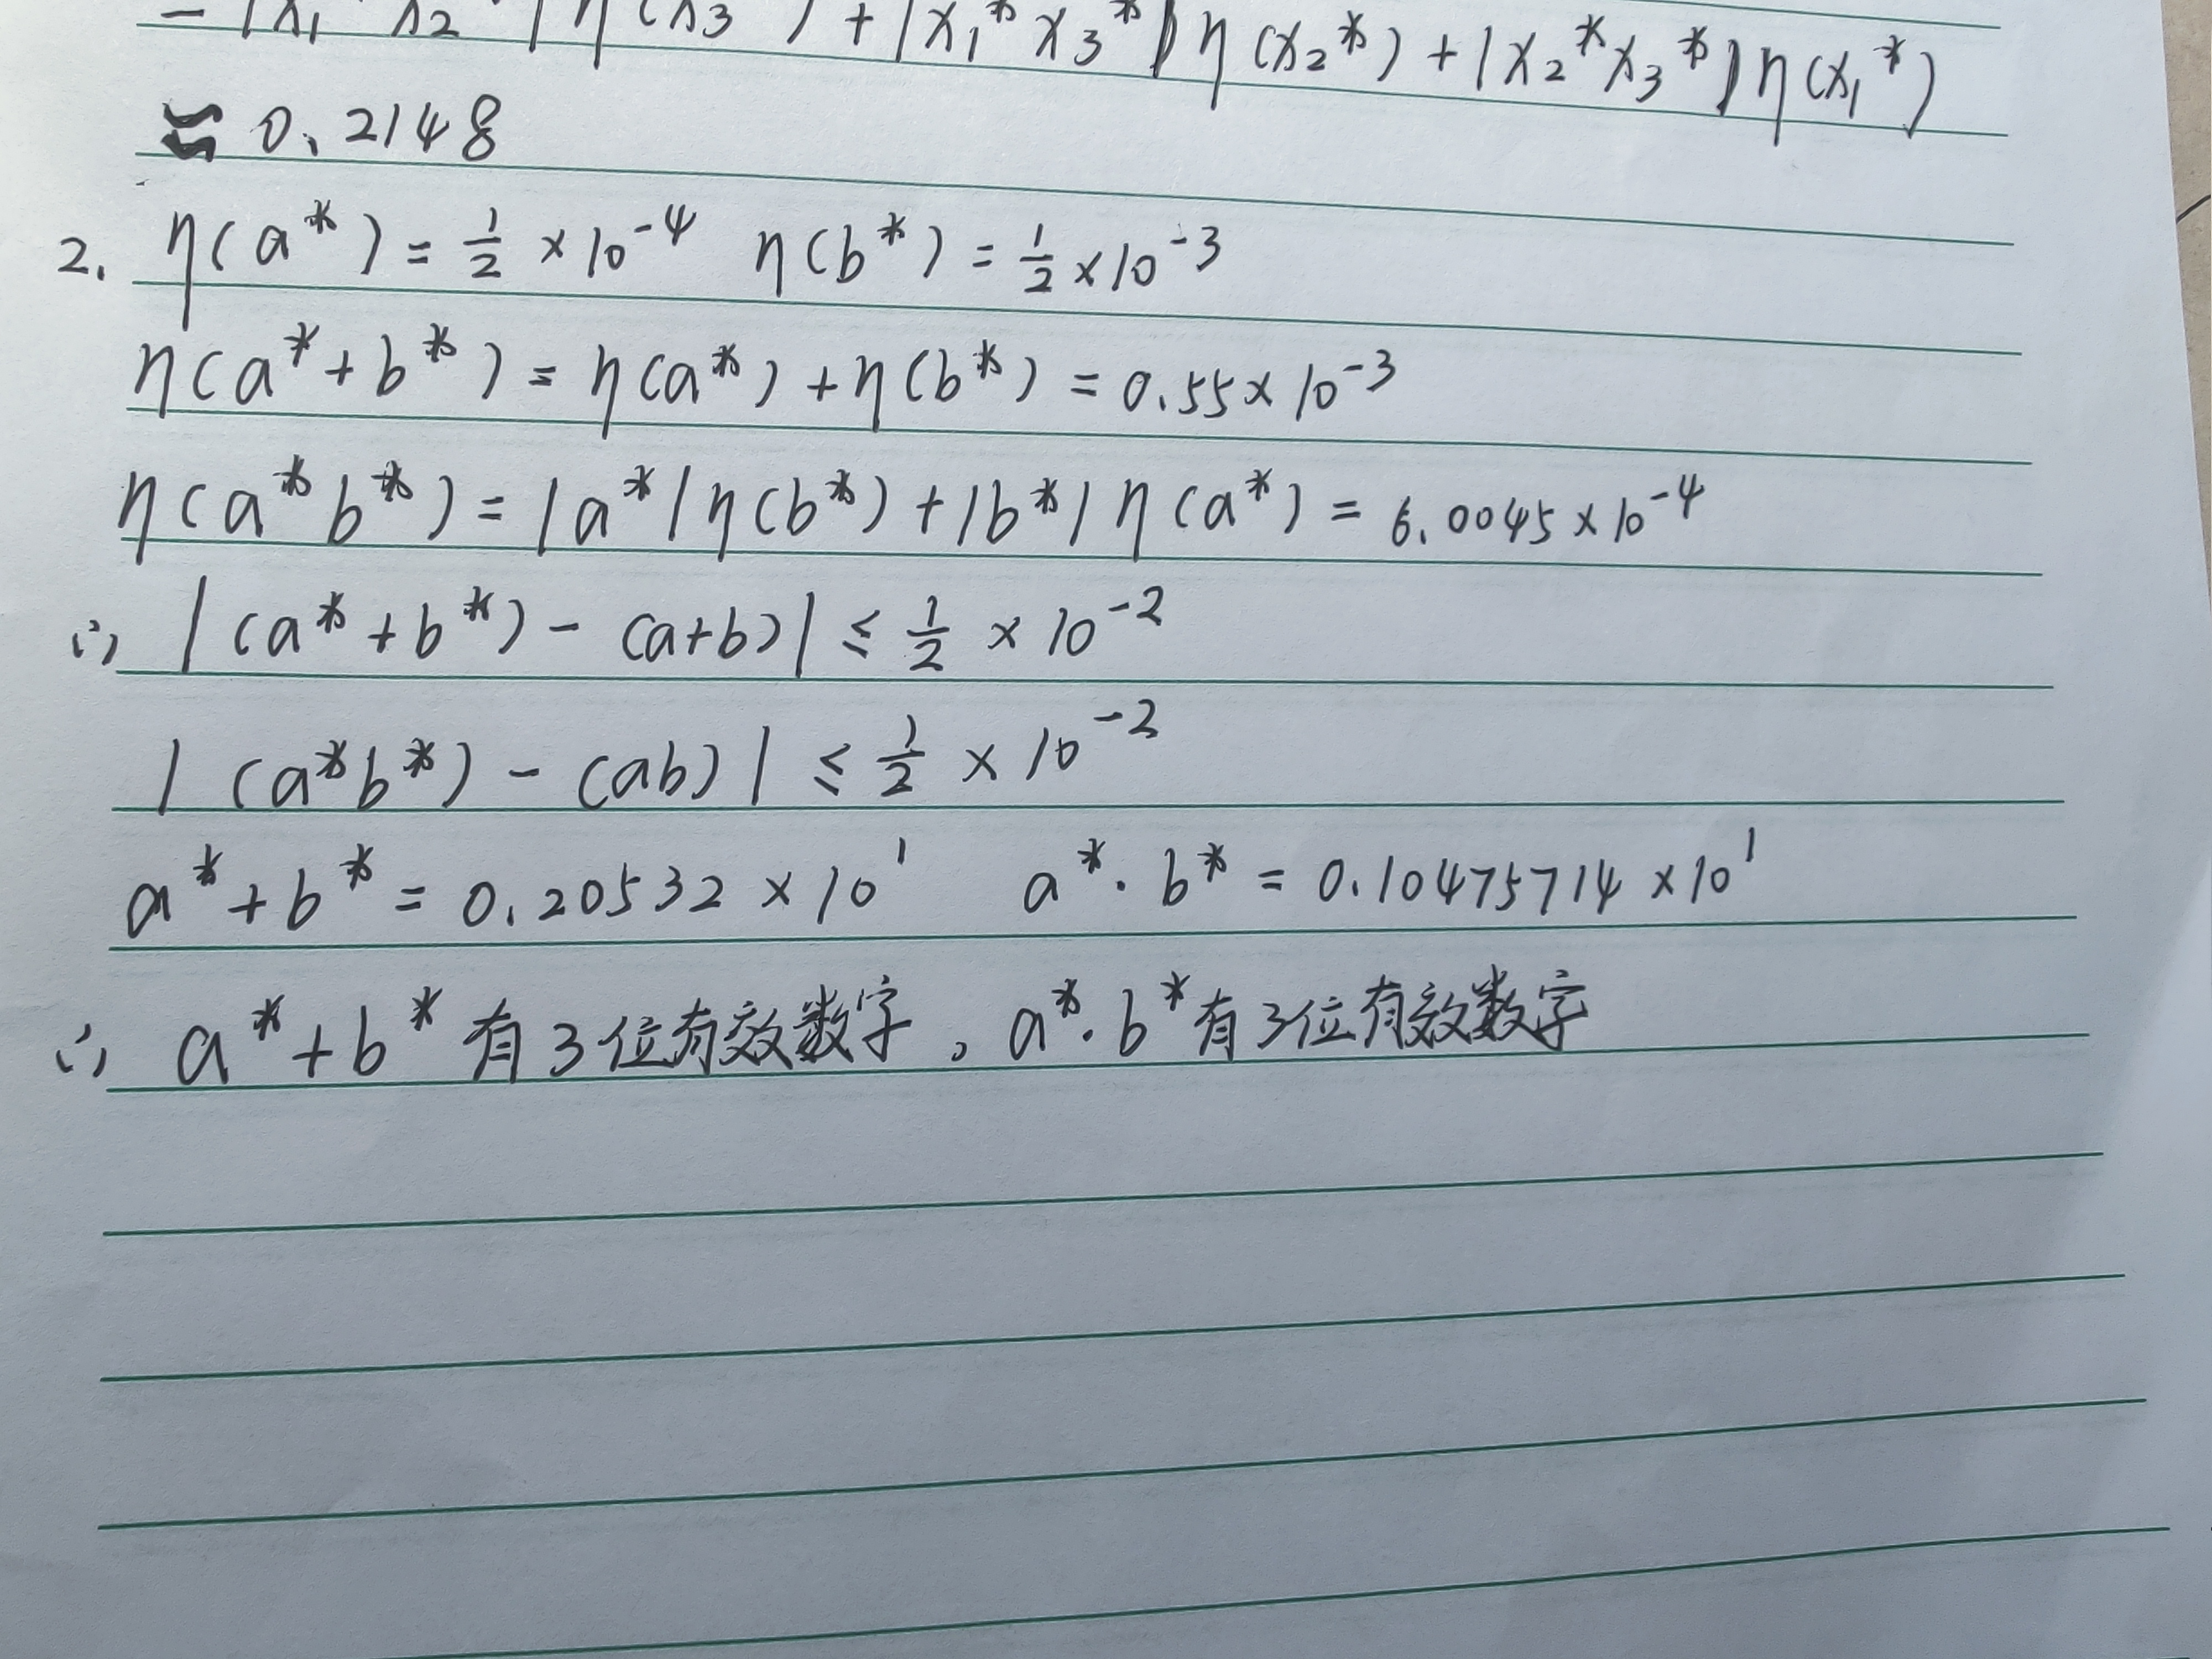 = |x₁* x₂*| η(x₃*) + |x₁* x₃*| η(x₂*) + |x₂* x₃*| η(x₁*)
≈ 0.2148
2. η(a*) = ½ × 10⁻⁴ η(b*) = ½ × 10⁻³
η(a* + b*) = η(a*) + η(b*) = 0.55 × 10⁻³
η(a* b*) = |a*| η(b*) + |b*| η(a*) = 6.0045 × 10⁻⁴
∴ |(a* + b*) - (a+b)| ≤ ½ × 10⁻²
|(a* b*) - (ab)| ≤ ½ × 10⁻²
a* + b* = 0.20532 × 10¹ a* · b* = 0.10475714 × 10¹
∴ a* + b* 有3位有效数字, a* · b* 有3位有效数字